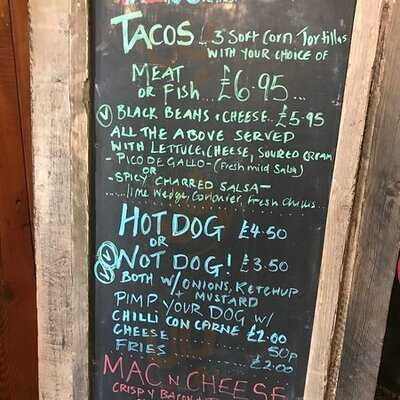 TACOS... 3 Soft Corn Tortillas
WITH YOUR CHOICE OF
MEAT
OR FISH... £6.95...
V BLACK BEANS & CHEESE.. £5.95
ALL THE ABOVE SERVED
WITH LETTUCE, CHEESE, SOURED CREAM
- PICO DE GALLO - (Fresh mild Salsa)
OR
- SPICY CHARRED SALSA -
......lime wedge, Coriander, Fresh Chillis...
HOT DOG £4.50
OR
V V NOT DOG! £3.50
BOTH W/ ONIONS, KETCHUP
+ MUSTARD
PIMP YOUR DOG W/
CHILLI CON CARNE £2.00
CHEESE......... 50p
FRIES ......... £2.00
MAC N CHEESE
CRISPY BACON